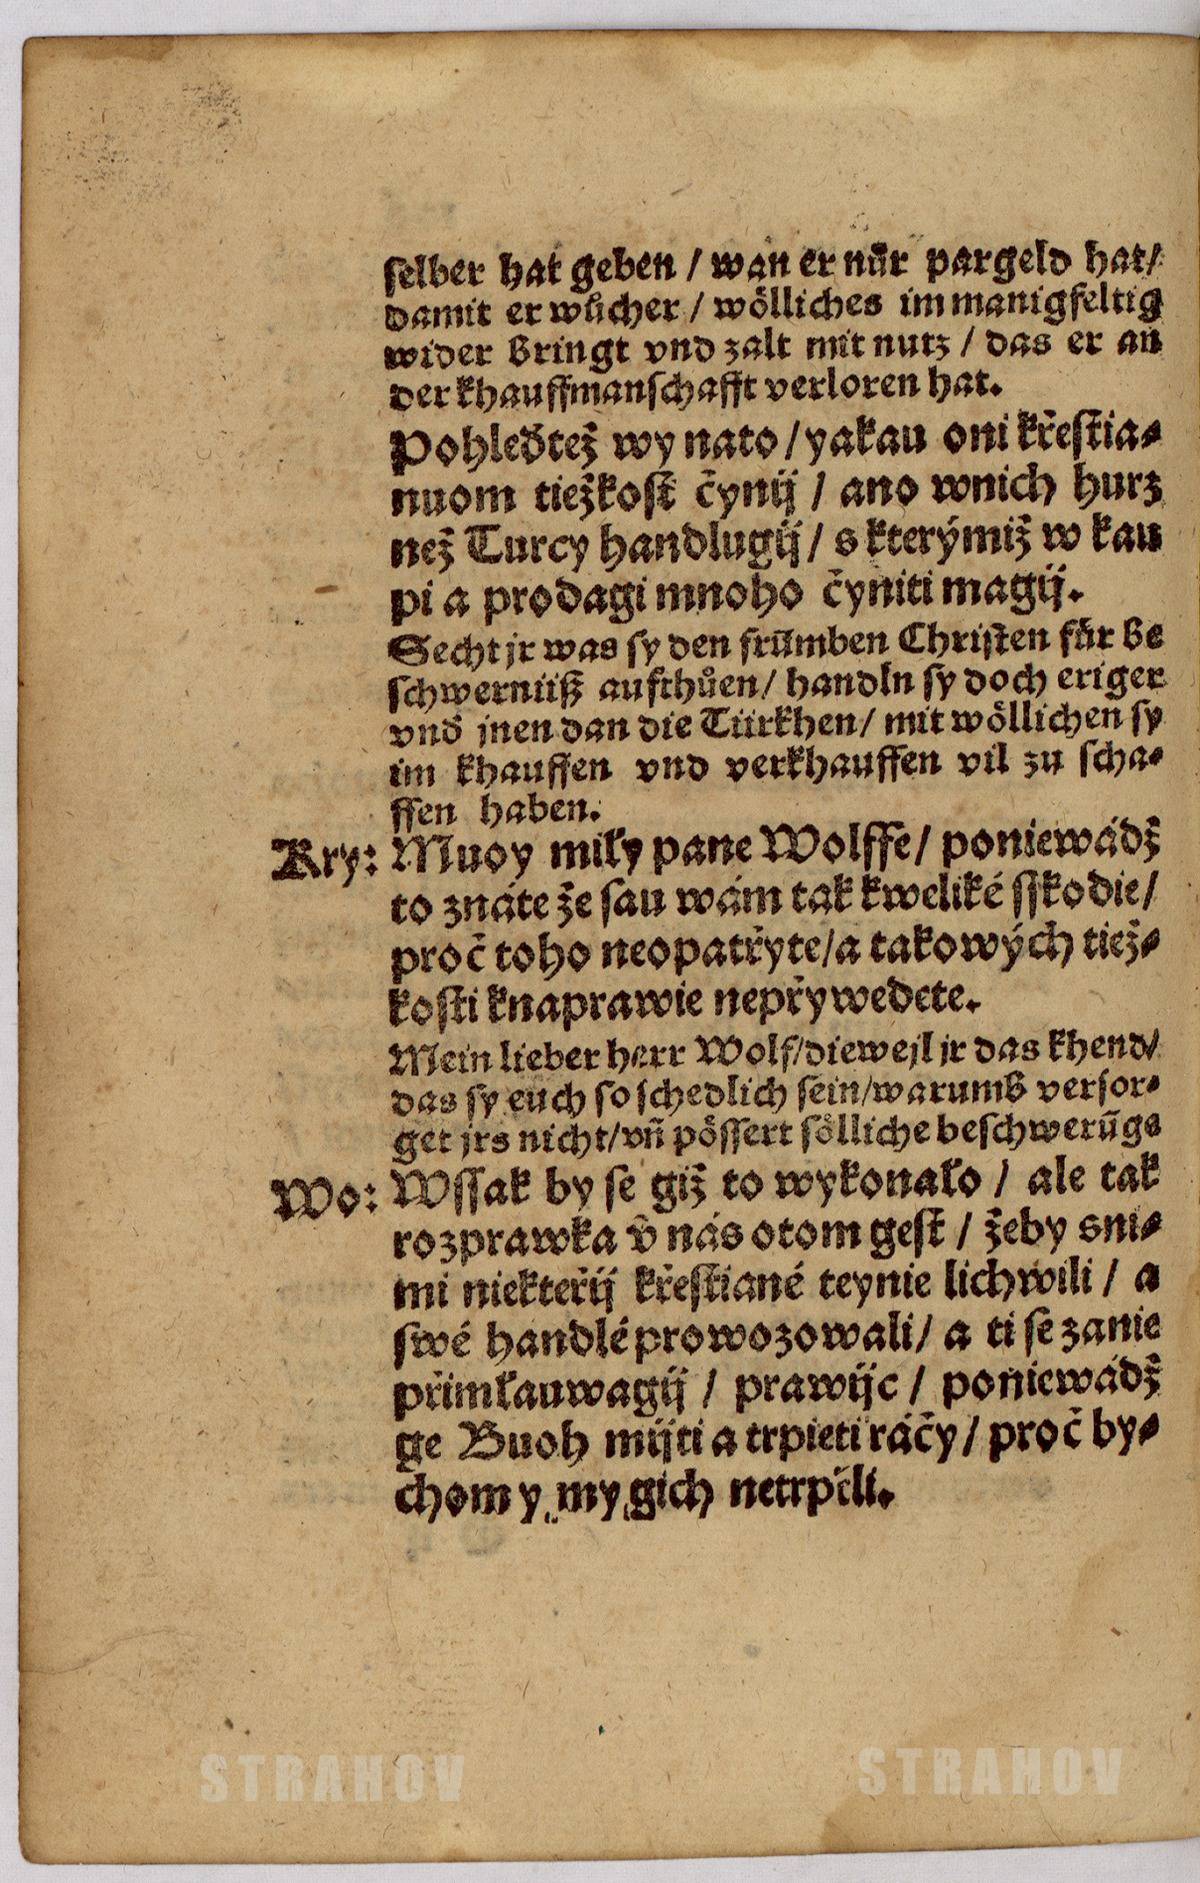 selber hat geben / wan er nůr pargeld hat /
damit er wůcher / wölliches im manigfeltig
wider bringt vnd zalt mit nutz / das er an
der khauffmanschafft verloren hat.
Pohleďtež wy nato / yakau oni křestia⸗
nuom tiežkost čynij / ano wnich hurz
než Turcy handlugij / s kterýmiž w kau
pi a prodagi mnoho čyniti magij.
Secht jr was sy den frum̃ben Christen für be
schwernüß aufthůen / handln sy doch eriger
vnd jnen dan die Türkhen / mit wöllichen sy
im khauffen vnd verkhauffen vil zu scha⸗
ffen haben.
Kry: Muoy miły pane Wolffe / poniewádž
to znáte že sau wám tak kweliké sskodie /
proč toho neopatřyte / a takowých tiež⸗
kosti knaprawie nepřywedete.
Mein lieber herr Wolf / diewejl jr das khend /
das sy euch so schedlich sein / warumb versor⸗
get jrs nicht / vn̄ pössert sölliche beschwerūgs
Wo: Wssak by se giž to wykonało / ale tak
rozprawka v̂ nás otom gest / žeby sni⸗
mi niekteřij křestiané teynie lichwili / a
swé handlé prowozowali / a ti se zanie
přimłauwagij / prawijc / poniewádž
ge Buoh mijti a trpieti ráčy / proč by⸗
chom y my gich netrpěli.
STRAHOV STRAHOV